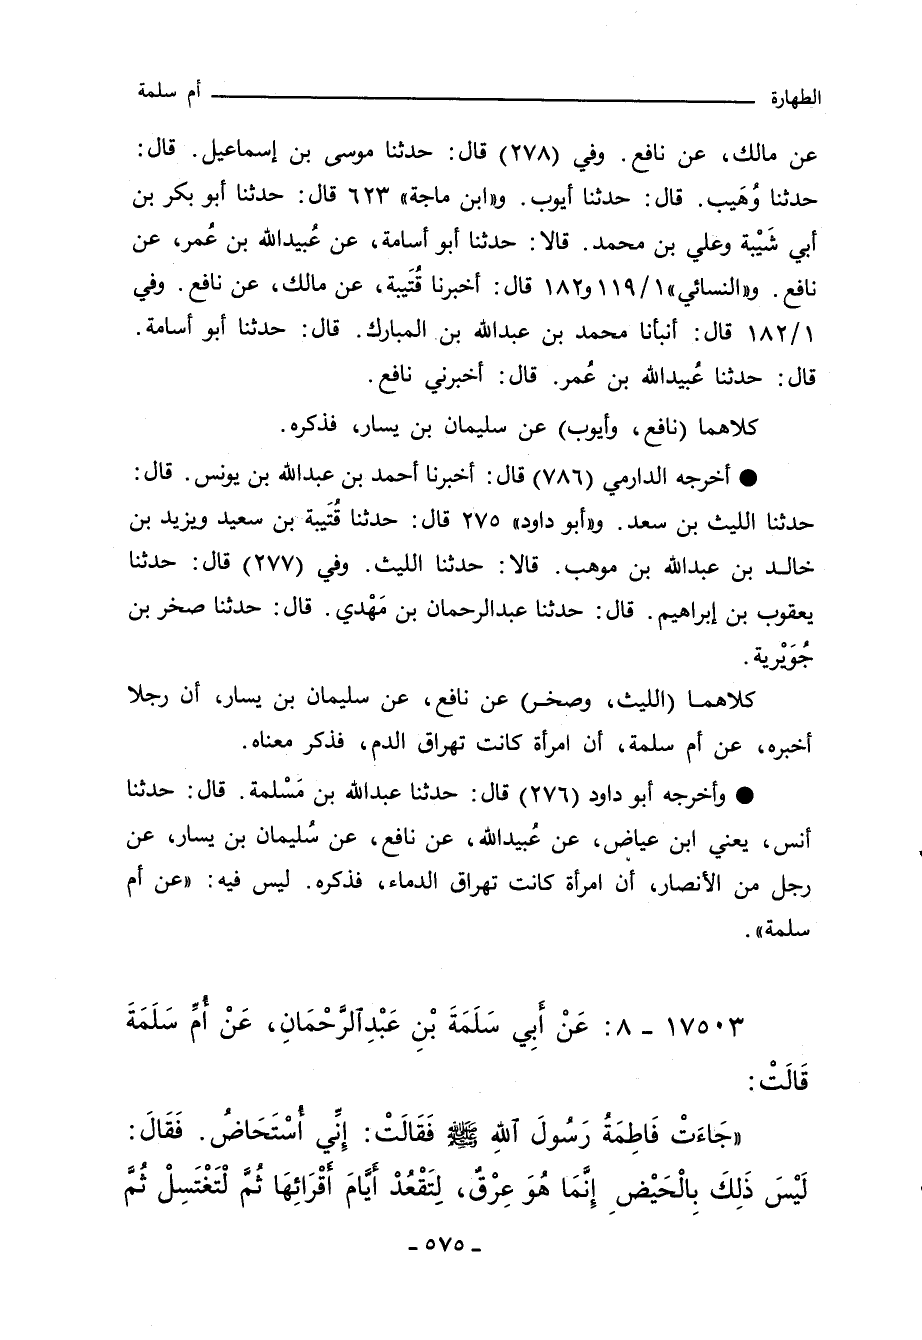 الطهارة ــــــــــــــــــــ أم سلمة
عن مالك، عن نافع. وفي (٢٧٨) قال: حدثنا موسى بن إسماعيل. قال:
حدثنا وُهَيب. قال: حدثنا أيوب. و«ابن ماجة» ٦٢٣ قال: حدثنا أبو بكر بن
أبي شَيْبة وعلي بن محمد. قالا: حدثنا أبو أسامة، عن عُبيدالله بن عُمر، عن
نافع. و«النسائي» ١١٩/١ و١٨٢ قال: أخبرنا قُتَيبة، عن مالك، عن نافع. وفي
١٨٢/١ قال: أنبأنا محمد بن عبدالله بن المبارك. قال: حدثنا أبو أسامة.
قال: حدثنا عُبيدالله بن عُمر. قال: أخبرني نافع.
كلاهما (نافع، وأيوب) عن سليمان بن يسار، فذكره.
● أخرجه الدارمي (٧٨٦) قال: أخبرنا أحمد بن عبدالله بن يونس. قال:
حدثنا الليث بن سعد. و«أبو داود» ٢٧٥ قال: حدثنا قُتَيبة بن سعيد ويزيد بن
خالد بن عبدالله بن موهب. قالا: حدثنا الليث. وفي (٢٧٧) قال: حدثنا
يعقوب بن إبراهيم. قال: حدثنا عبدالرحمان بن مَهْدي. قال: حدثنا صخر بن
جُوَيْرية.
كلاهما (الليث، وصخر) عن نافع، عن سليمان بن يسار، أن رجلا
أخبره، عن أم سلمة، أن امرأة كانت تهراق الدم، فذكر معناه.
● وأخرجه أبو داود (٢٧٦) قال: حدثنا عبدالله بن مَسْلمة. قال: حدثنا
أنس، يعني ابن عياض، عن عُبيدالله، عن نافع، عن سُليمان بن يسار، عن
رجل من الأنصار، أن امرأة كانت تهراق الدماء، فذكره. ليس فيه: «عن أم
سلمة».
١٧٥٠٣ ـ ٨: عَنْ أَبِي سَلَمَةَ بْنِ عَبْدِ ٱلرَّحْمَانِ، عَنْ أُمِّ سَلَمَةَ
قَالَتْ:
«جَاءَتْ فَاطِمَةُ رَسُولَ ٱللهِ ﷺ فَقَالَتْ: إِنِّي أُسْتَحَاضُ. فَقَالَ:
لَيْسَ ذَلِكَ بِالْحَيْضِ إِنَّمَا هُوَ عِرْقٌ، لِتَقْعُدْ أَيَّامَ أَقْرَائِهَا ثُمَّ لْتَغْتَسِلْ ثُمَّ
ـ ٥٧٥ ـ